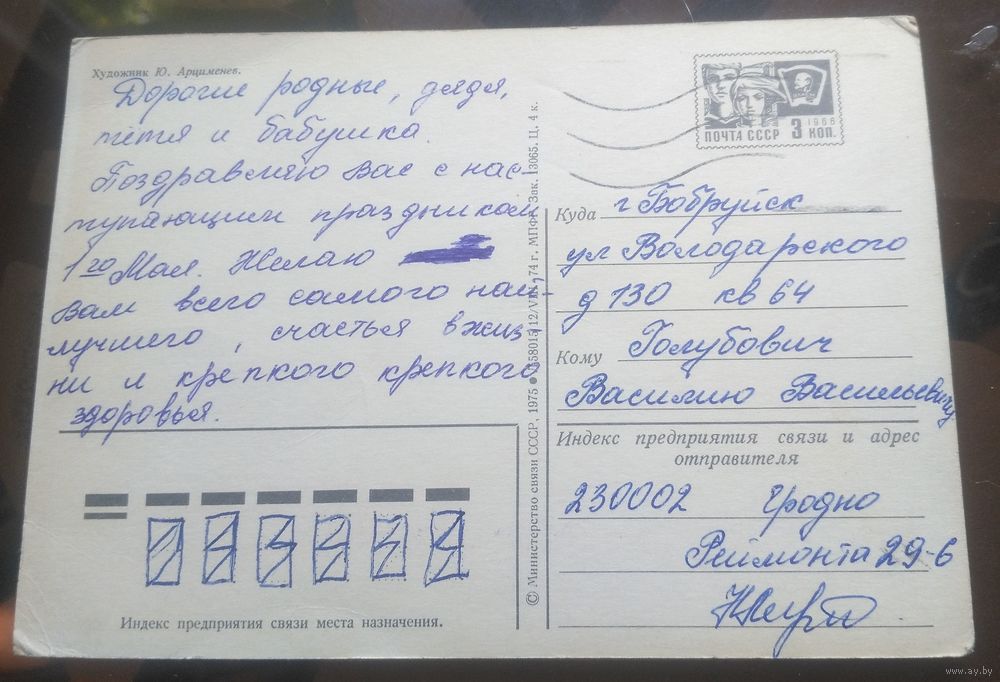 Художник Ю. Арцименев.
Дорогие родные, дядя,
тётя и бабушка.
Поздравляю Вас с нас-
тупающим праздником
1го Мая. Желаю
вам всего самого наи-
лучшего, счастья в жиз
ни и крепкого крепкого
здоровья.
Индекс предприятия связи места назначения.
© Министерство связи СССР, 1975 ● 74 г., МПФГ. Зак. 13065. Ц. 4 к.
ПОЧТА СССР 3 КОП.
1966
Куда г Бобруйск
ул Володарского
д 130 кв 64
Кому Голубович
Василию Васильевичу
Индекс предприятия связи и адрес
отправителя
230002 Гродно
Реймонта 29-6
www.ay.by